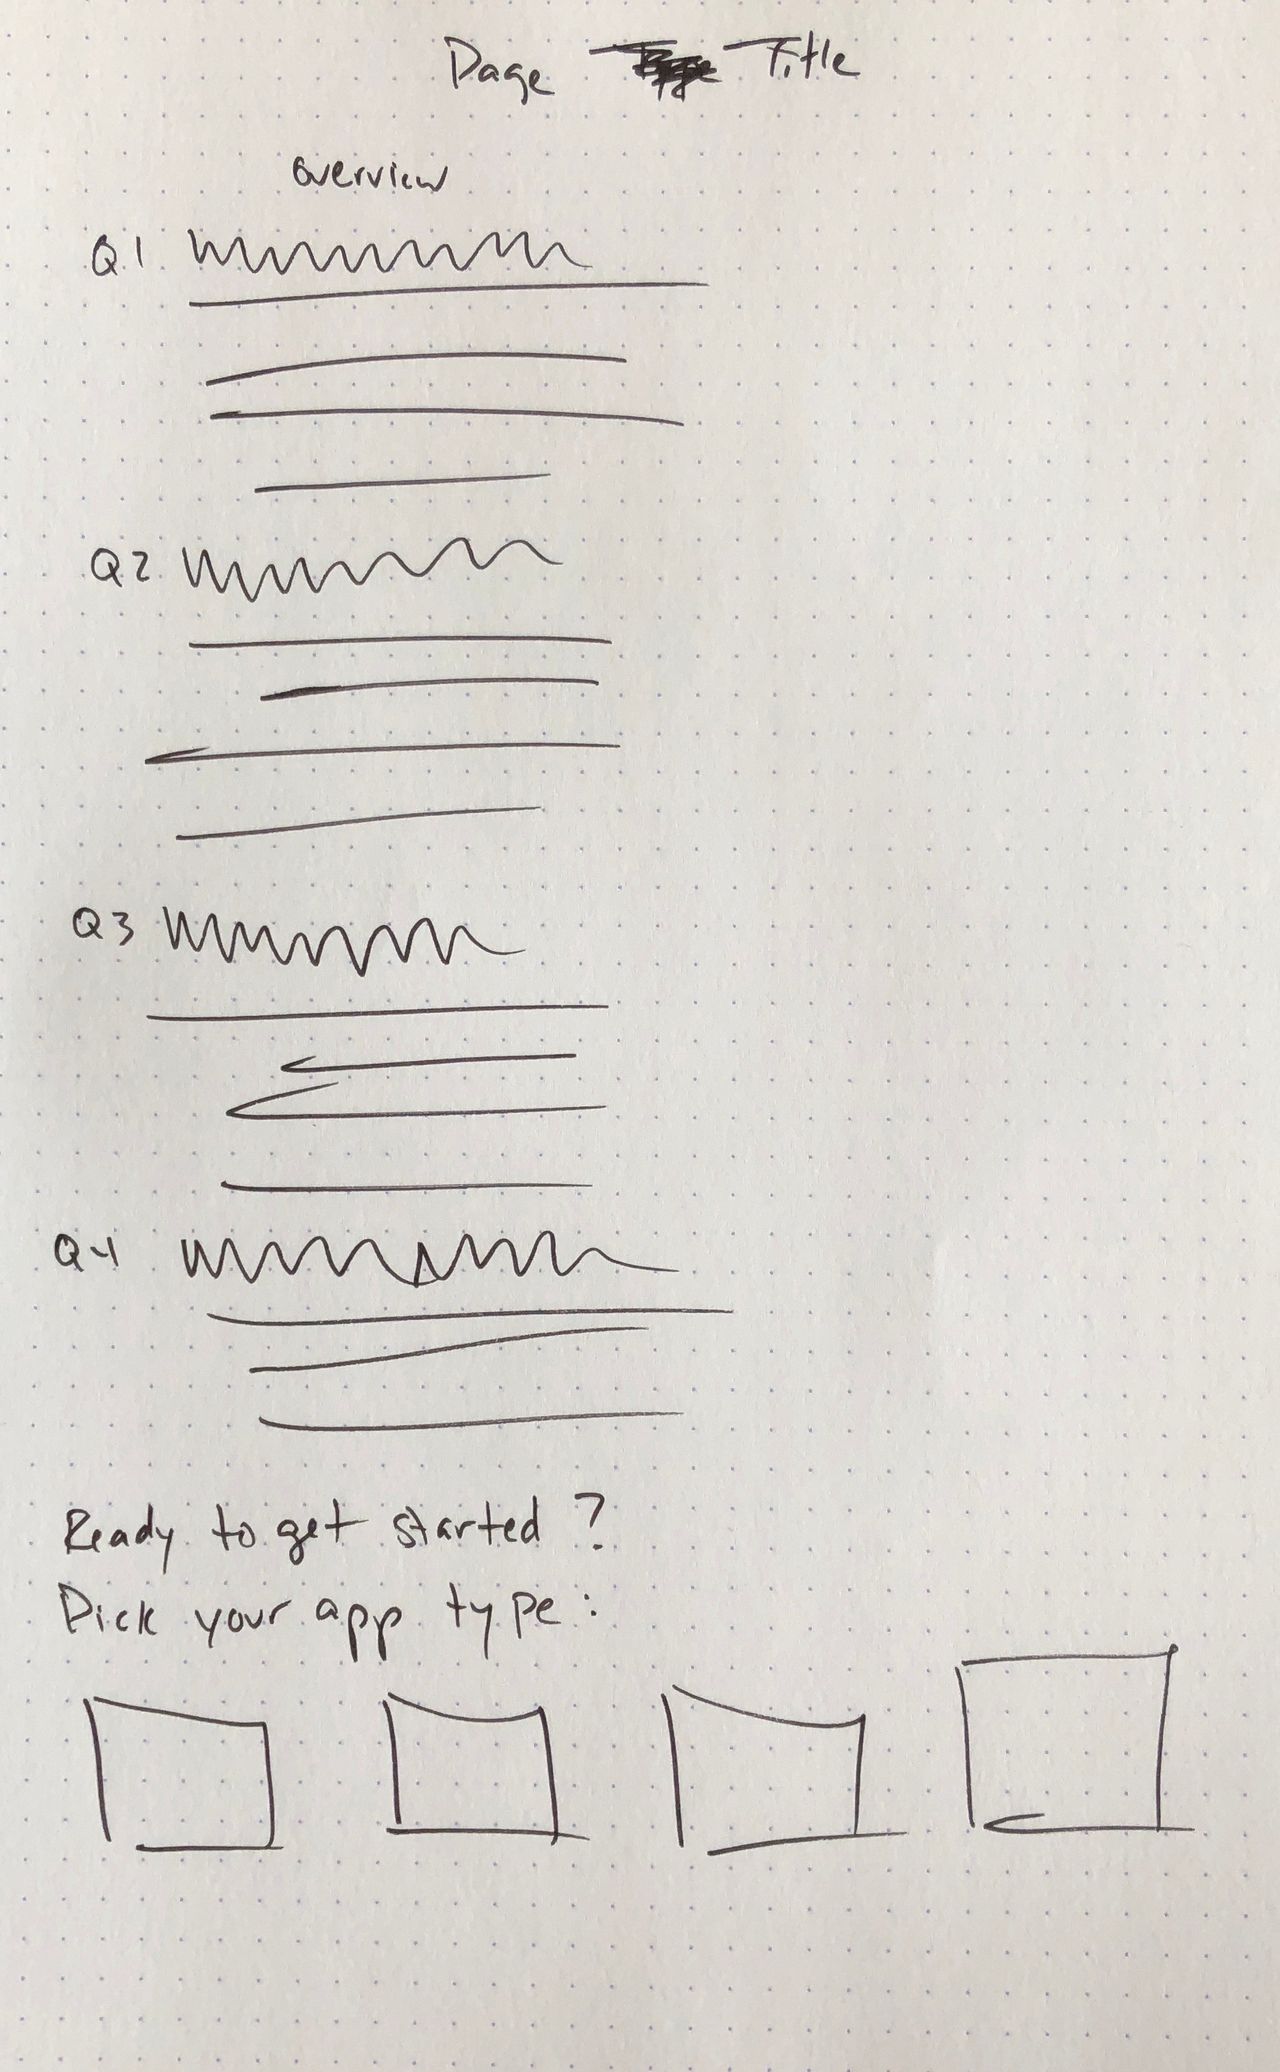 Page Title
overview
Q1
Q2
Q3
Q4
Ready to get started?
Pick your app type: